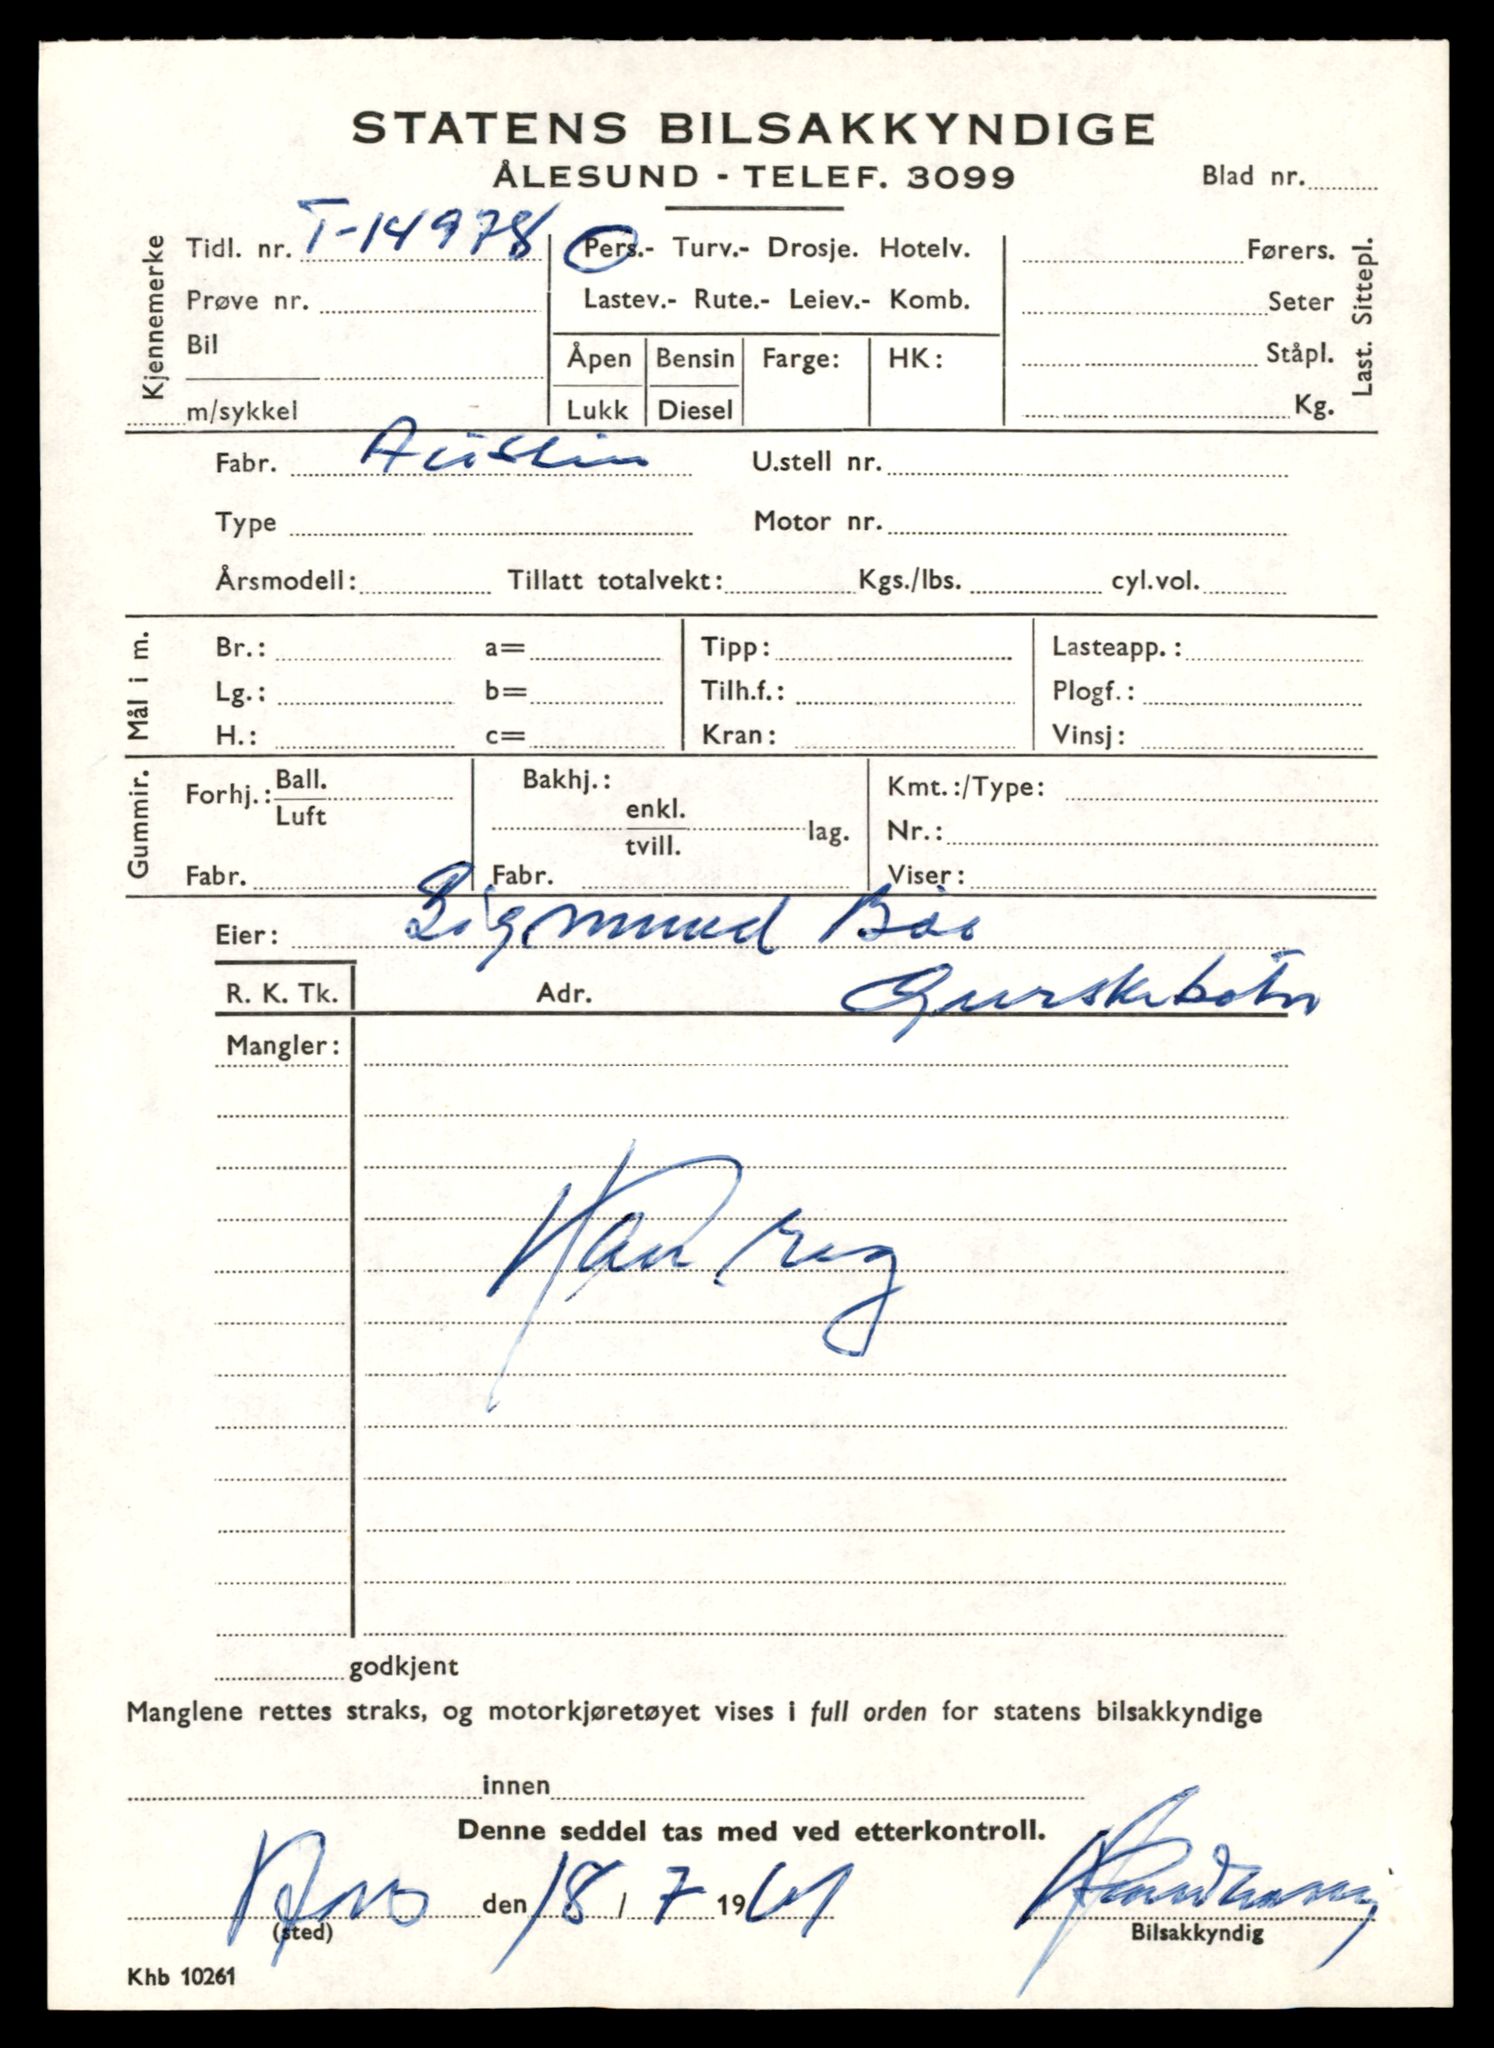 STATENS BILSAKKYNDIGE
ÅLESUND - TELEF. 3099
Blad nr.
Kjennemerke
Tidl. nr. T-14978
Prøve nr.
Bil
m/sykkel
Pers.- Turv.- Drosje. Hotelv.
Lastev.- Rute.- Leiev.- Komb.
Åpen
Lukk
Bensin
Diesel
Farge:
HK:
Førers.
Seter
Ståpl.
Kg.
Last. Sittepl.
Fabr. Austin U.stell nr.
Type Motor nr.
Årsmodell: Tillatt totalvekt: Kgs./lbs. cyl.vol.
Mål i m.
Br.: a= Tipp: Lasteapp.:
Lg.: b= Tilh.f.: Plogf.:
H.: c= Kran: Vinsj:
Gummir.
Forhj.: Ball.
Luft
Fabr.
Bakhj.:
enkl.
tvill. lag.
Fabr.
Kmt.:/Type:
Nr.:
Viser:
Eier: Sigmund Bøe
R. K. Tk. Adr. Gurskebotn
Mangler:
Kan reg
godkjent
Manglene rettes straks, og motorkjøretøyet vises i full orden for statens bilsakkyndige
innen
Denne seddel tas med ved etterkontroll.
den 18/7 1961
(sted)
Bilsakkyndig
Khb 10261